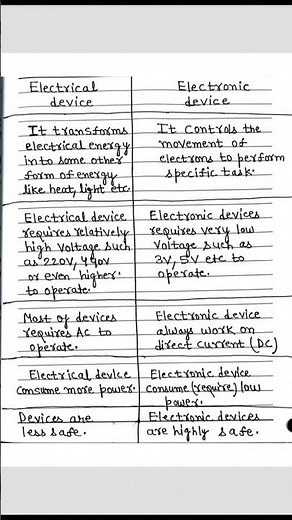 Electrical
device
Electronic
device
It transforms
electrical energy
into some other
form of energy
like heat, light etc.
It controls the
movement of
electrons to perform
specific task.
Electrical device
requires relatively
high voltage such
as 220V, 440V
or even higher.
to operate.
Electronic devices
requires very low
voltage such as
3V, 5V etc to
operate.
Most of devices
requires AC to
operate.
Electronic device
always work on
direct current (DC)
Electrical device
consume more power.
Electronic device
consume (require) low
power.
Devices are
less safe.
Electronic devices
are highly safe.